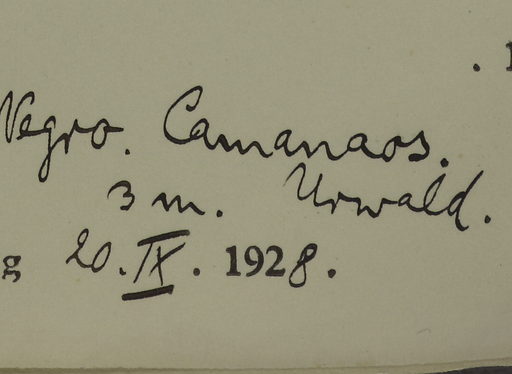 Negro. Camanaos.
3 m. Urwald.
g 20.IX.1928.